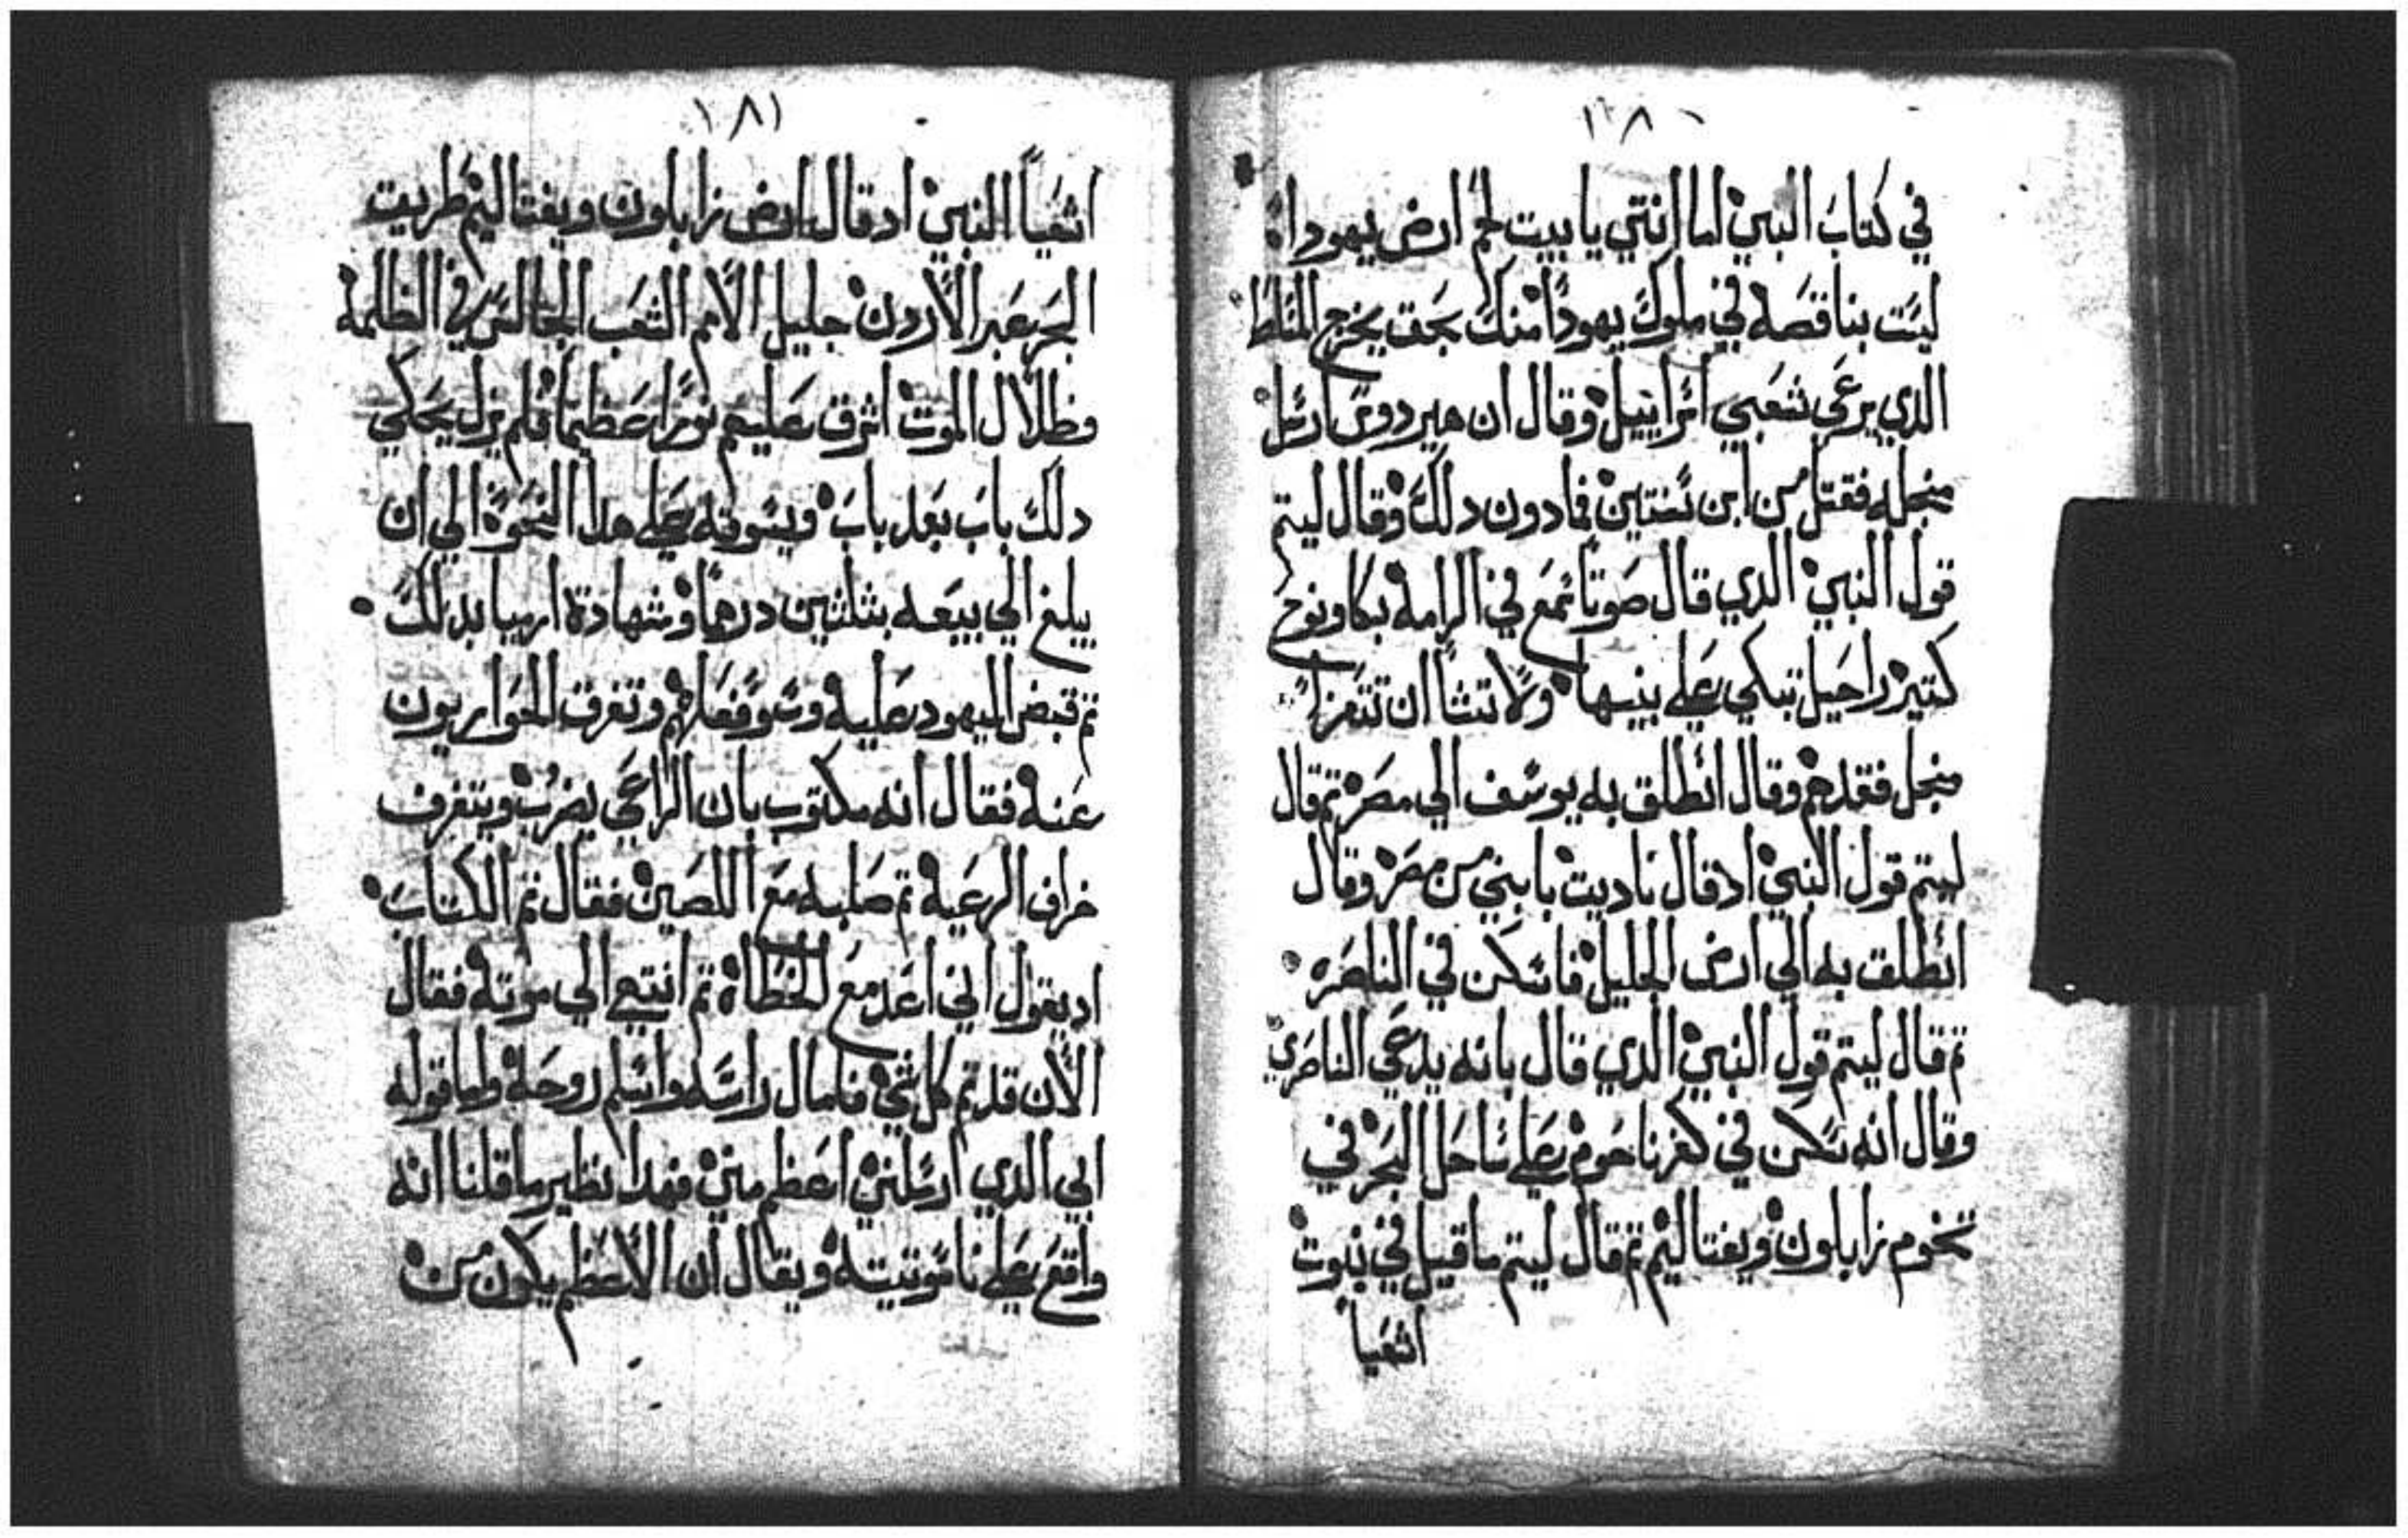 ١٨٠
في كتاب النبي اما انتي يا بيت لحم ارض يهودا
ليست بناقصه في ملوك يهودا منك بحق يخرج المسلط
الدي يرعي شعبي اسراييل وقال ان هيردوس ارسل
منجله فقتل من ابن سنتين فمادون دلك وقال ليتم
قول النبي الدي قال صوتا سمع في الرامه بكا ونوح
كتير راحيل تبكي علي بنيها ولا تشا ان تتعزا
منجل فقدهم وقال انطلق به يوسف الي مصر تم قال
ليتم قول النبي اد قال ناديت بابني من مصر وقال
انطلق به الي ارض الجليل فاسكن في الناصره
تم قال ليتم قول النبي الدي قال بانه يدعي الناصري
وقال انه سكن في كفرناحوم علي ساحل البحر في
تخوم زابلون ويفتاليم تم قال ليتم ما قيل في نبوت
اشعيا
١٨١
اشعيا النبي اد قال ارض زابلون ويفتاليم طريت
البحر عبر الاردن جليل الامم الشعب الجالس في الظلمه
وظلال الموت اشرق عليهم نورا عظيما فلم يزل يحكي
دلك باب بعد باب ويسوقه علي هدا النحو الي ان
يبلغ الي بيعه بتلتين درهما وشهادة ارميا بدلك
تم قبض اليهود عليه وسو فعالهم وتفرق الحواريون
عنه فقال انه مكتوب بان الراعي يضرب ويتفرق
خراف الرعيه تم صلبه مع اللصين فقال تم الكتاب
اد يقول اني اعد مع الخطاة تم انتهي الي موته فقال
الان قد تم كل شي فامال راسه واسلم روحه واما قوله
ابي الدي ارسلني اعظم مني فهدا نظير ما قلنا انه
واقع علي ناسوتيته ويقال ان الاعظم يكون من